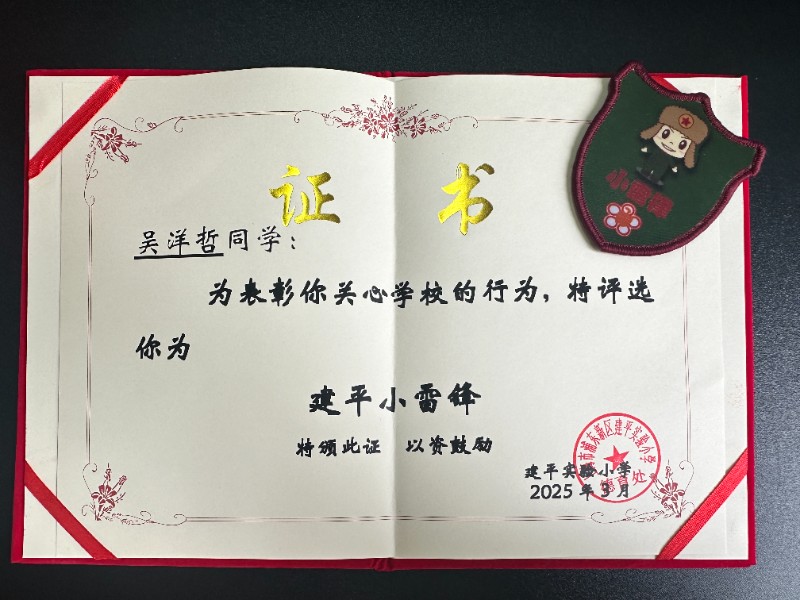 证书
小雷锋
吴洋哲同学：
为表彰你关心学校的行为，特评选
你为
建平小雷锋
特颁此证 以资鼓励
市浦东新区建平实验小学
德育处
建平实验小学
2025年3月